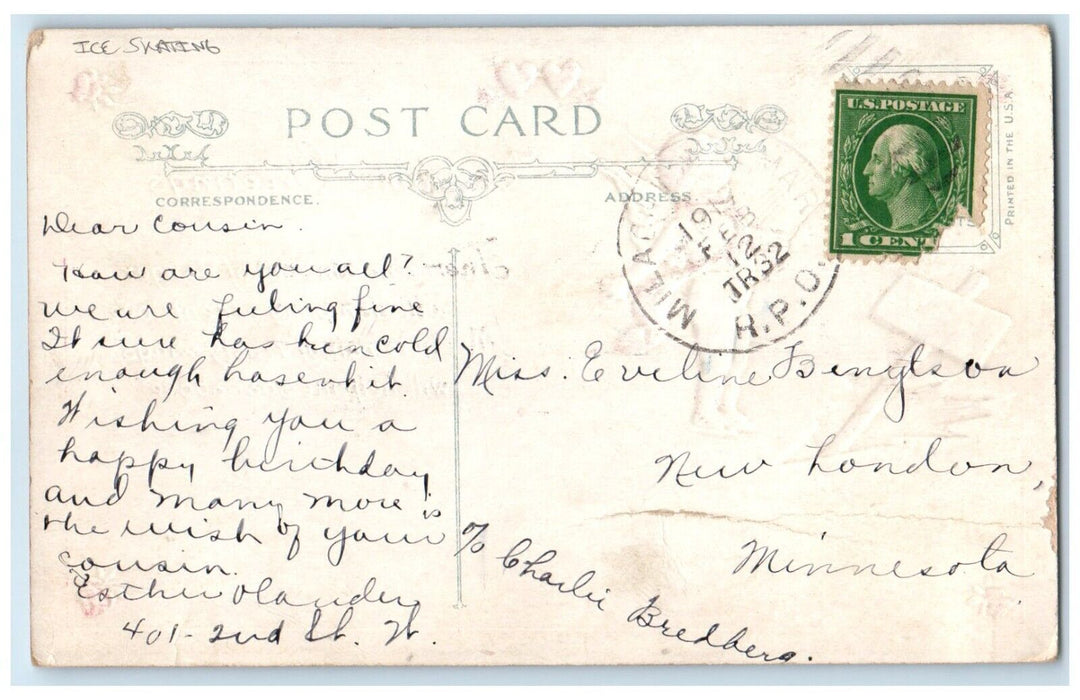 ICE SKATING
POST CARD
CORRESPONDENCE.
ADDRESS
U.S. POSTAGE
1 CENT
PRINTED IN THE U.S.A.
R.P.O.
FEB
12
TR32
Dear Cousin.
How are you all?
we are feeling fine
It sure has been cold
enough hasent it.
Wishing you a
happy birthday
and many more is
the wish of your
cousin.
Esther Olander
401-2nd St. W.
Miss. Eveline Bengtson
New London,
Minnesota
c/o Charlie Bredberg.